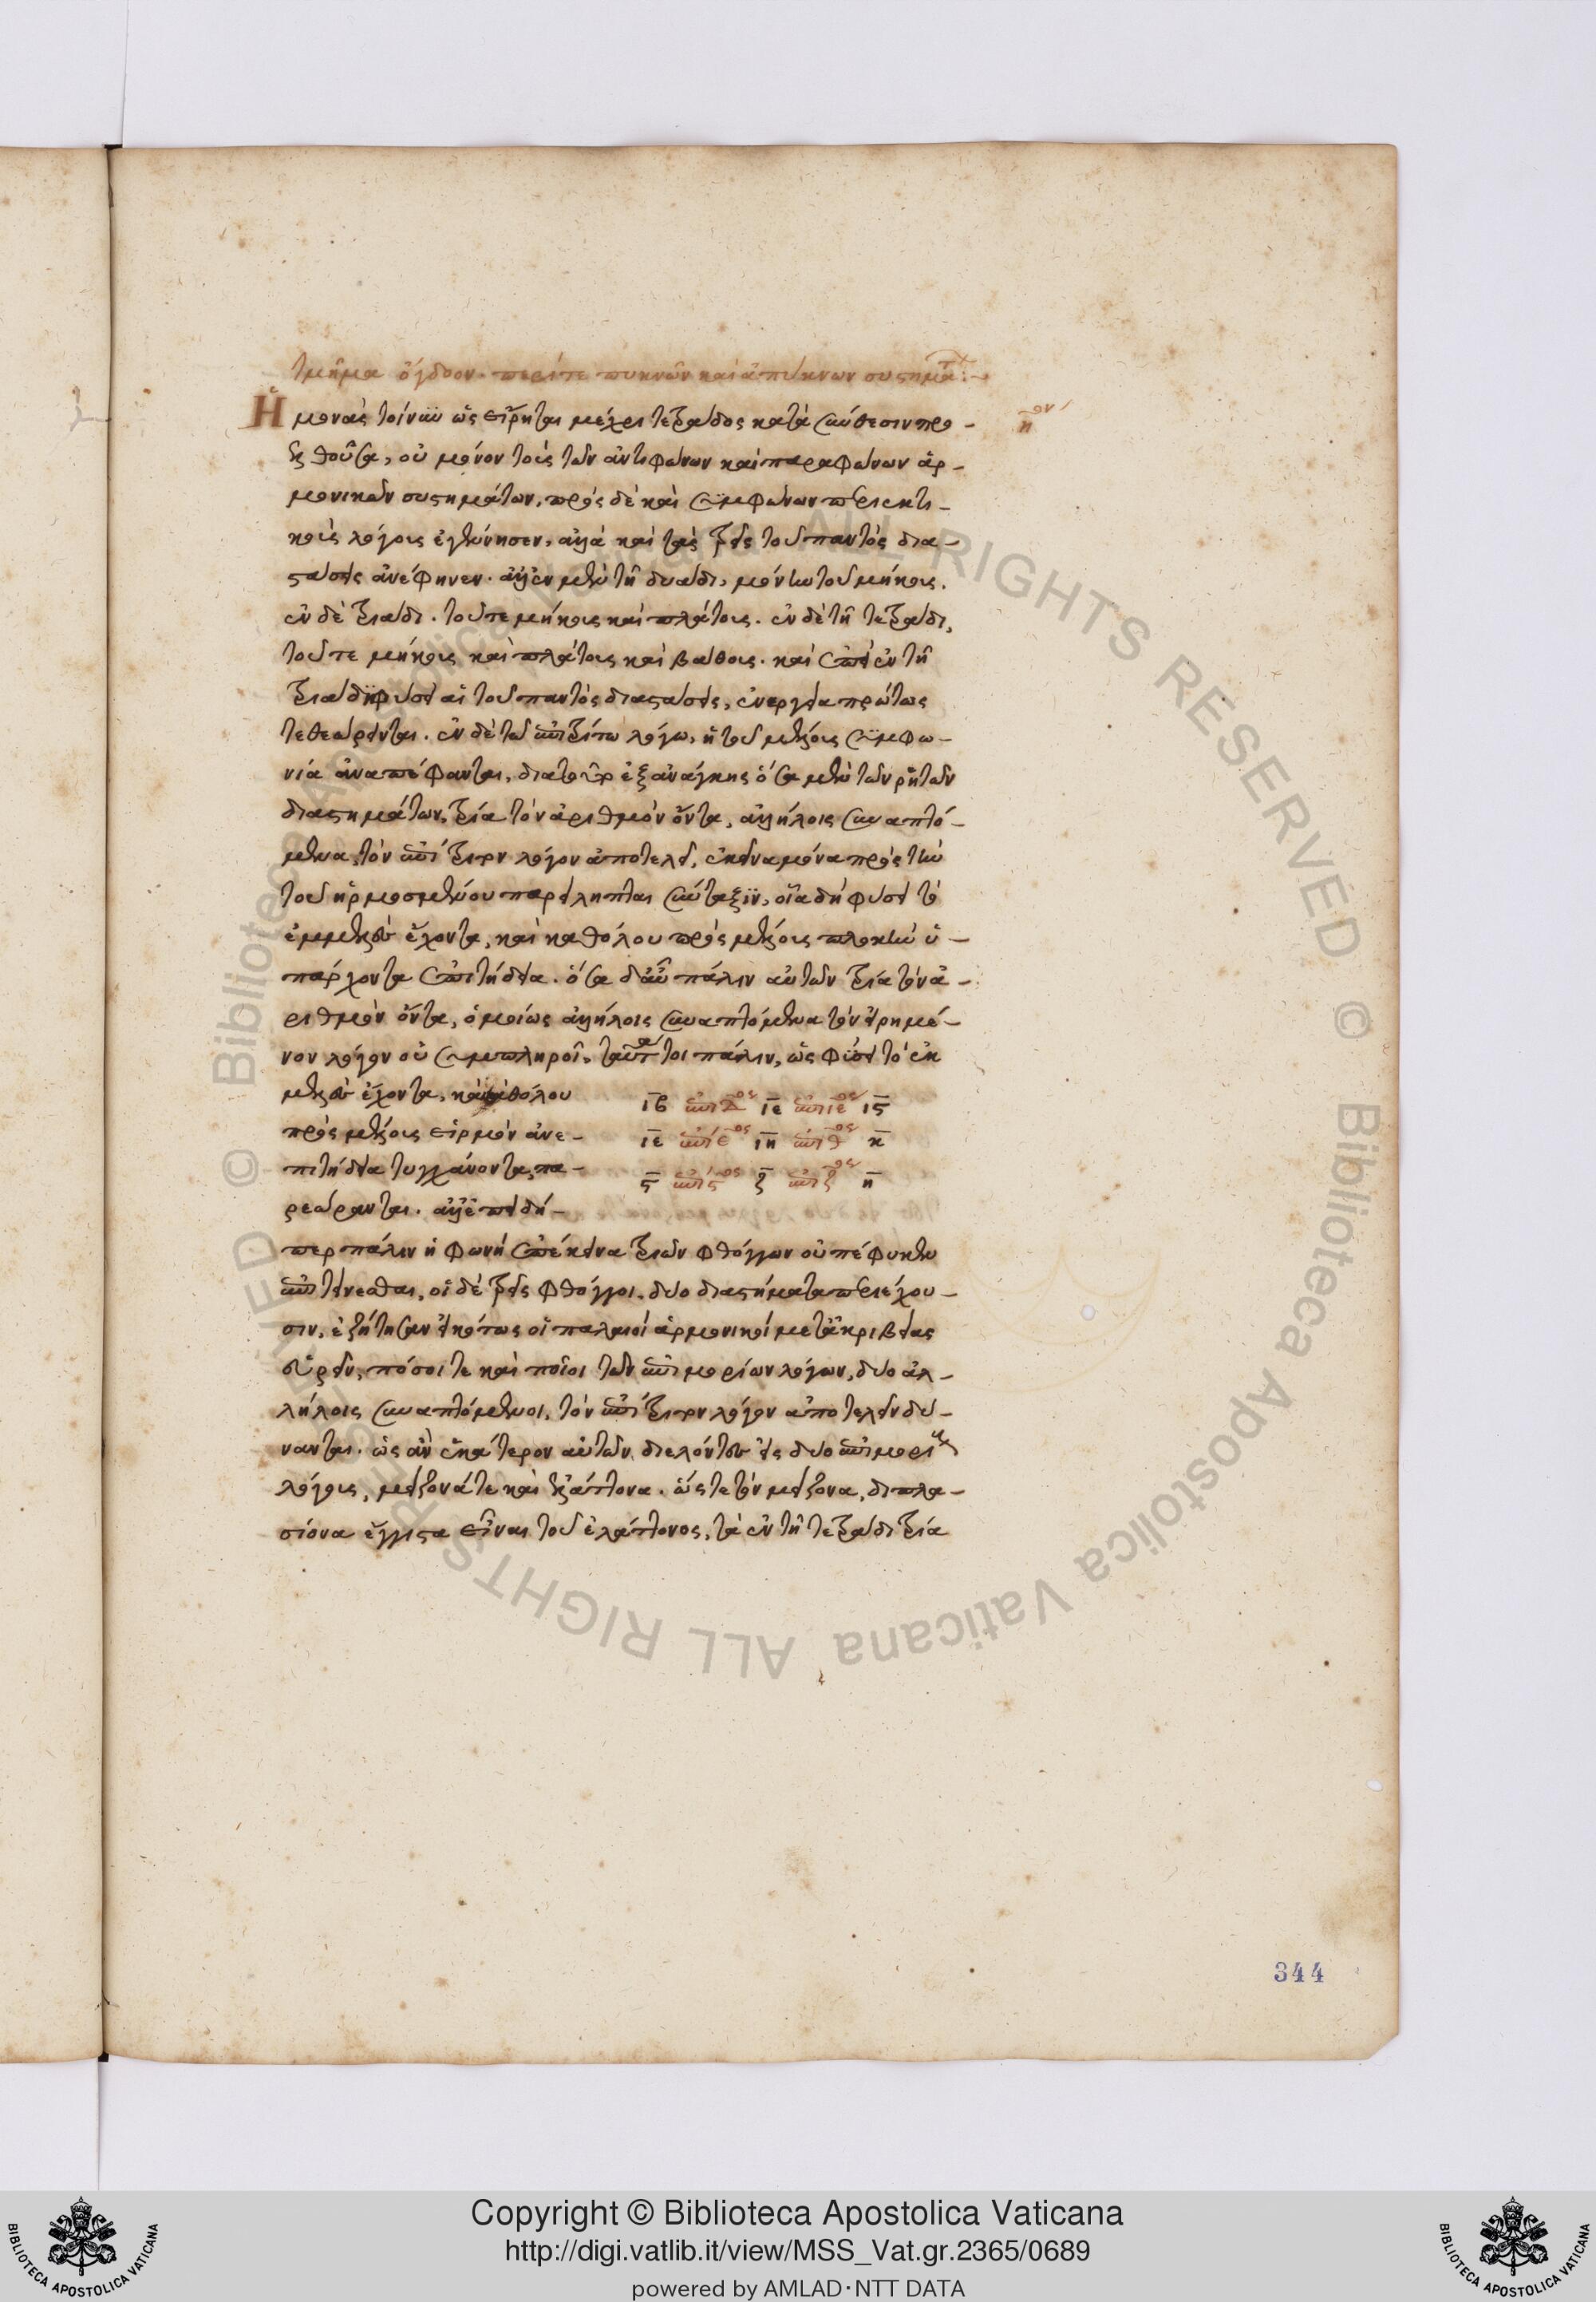 τμῆμα ὄγδοον. περί τε πυκνῶν καὶ ἀπύκνων συστημάτ:
Ἡ μονὰς τοίνυν ὡς εἴρηται μέχρι τετράδος κατὰ σύνθεσιν προ-
ελθοῦσα, οὐ μόνον τοὺς τῶν ἀντιφώνων καὶ παραφώνων ἁρ-
μονικῶν συστημάτων, πρὸς δὲ καὶ συμφώνων περιεκτι-
κοὺς λόγους ἐγέννησεν, ἀλλὰ καὶ τὰς τρεῖς τοῦ παντὸς δια-
στάσεις ἀνέφηνεν. ἀλλ' ἐν μὲν τῇ δυάδι, μόνην τοῦ μήκους.
ἐν δὲ τριάδι. τοῦ τε μήκους καὶ πλάτους. ἐν δὲ τῇ τετράδι,
τοῦ τε μήκους καὶ πλάτους καὶ βάθους. καὶ ἐπεὶ ἐν τῇ
τριάδι φύσει αἱ τοῦ παντὸς διαστάσεις, ἐνεργείᾳ πρώτως
τεθεώρηνται. ἐν δὲ τῷ ἐπιτρίτῳ λόγῳ, ἡ τοῦ μέλους συμφω-
νία ἀναπέφανται, διὰ τοῦτο ἐξανάγκης ὅσα μὲν τῶν ῥητῶν
διαστημάτων, τρία τὸν ἀριθμὸν ὄντα, ἀλλήλοις συναπτό-
μενα, τὸν ἐπίτριτον λόγον ἀποτελεῖ, ἐκεῖνα μόνα πρὸς τὴν
τοῦ ἡρμοσμένου παρείληπται σύνταξιν, οἷα δὴ φύσει τὸ
ἐμμελὲς ἔχοντα, καὶ καθόλου πρὸς μέλους πλοκὴν ὑ-
πάρχοντα ἐπιτήδεια. ὅσα δ' αὖ πάλιν αὐτῶν τρία τὸν ἀ-
ριθμὸν ὄντα, ὁμοίως ἀλλήλοις συναπτόμενα τὸν εἰρημέ-
νον λόγον οὐ συμπληροῖ, ταῦτά τοι πάλιν, ὡς φύσει τὸ ἐκ
μελὲς ἔχοντα, καὶ καθόλου
πρὸς μέλους εἱρμὸν ἀνε-
πιτήδεια τυγχάνοντα, πα-
ρεώρανται. ἀλλ' ἐπειδή-
ιβ ἐπιδος ιε ἐπιιεος ις
ιε ἐπιεος ιη ἐπιθος κ
ς ἐπιςος ζ ἐπιζος η
περ πάλιν ἡ φωνὴ ἐπέκεινα τριῶν φθόγγων οὐ πέφυκεν
ἐπιτείνεσθαι, οἱ δὲ τρεῖς φθόγγοι. δύο διαστήματα περιέχου-
σιν, ἐζήτησαν εἰκότως οἱ παλαιοὶ ἁρμονικοὶ μετ' ἀκριβείας
εὑρεῖν, πόσοι τε καὶ ποῖοι τῶν ἐπιμορίων λόγων, δύο ἀλ-
λήλοις συναπτόμενοι, τὸν ἐπίτριτον λόγον ἀποτελεῖν δύ-
νανται. ὡς ἂν ἑκάτερον αὐτῶν διελόντες εἰς δύο ἐπιμορίους
λόγους, μείζονά τε καὶ ἐλάττονα. ὥστε τὸν μείζονα, διπλα-
σίονα ἔγγιστα εἶναι τοῦ ἐλάττονος, τὰ ἐν τῇ τετράδι τρία
ηον
344
Copyright © Biblioteca Apostolica Vaticana
http://digi.vatlib.it/view/MSS_Vat.gr.2365/0689
powered by AMLAD·NTT DATA
BIBLIOTECA APOSTOLICA VATICANA
BIBLIOTECA APOSTOLICA VATICANA
© Biblioteca Apostolica Vaticana ALL RIGHTS RESERVED © Biblioteca Apostolica Vaticana ALL RIGHTS RESERVED